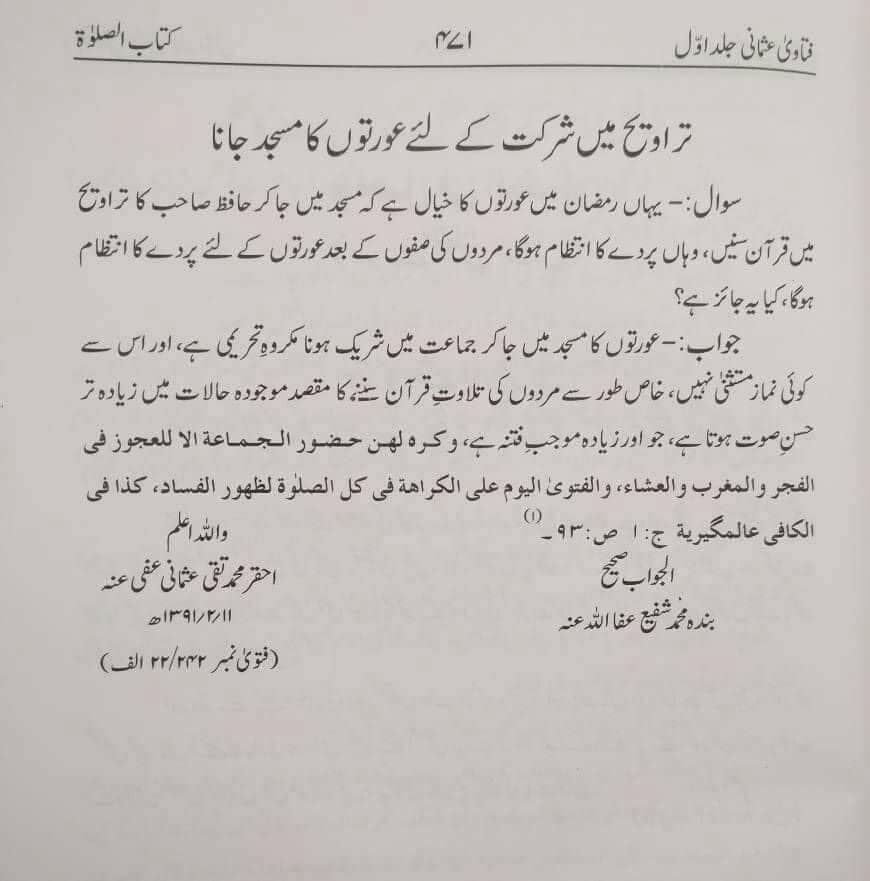 فتاویٰ عثمانی جلد اوّل
۴۷۱
کتاب الصلوٰة
تراویح میں شرکت کے لئے عورتوں کا مسجد جانا
سوال:- یہاں رمضان میں عورتوں کا خیال ہے کہ مسجد میں جا کر حافظ صاحب کا تراویح
میں قرآن سنیں، وہاں پردے کا انتظام ہوگا، مردوں کی صفوں کے بعد عورتوں کے لئے پردے کا انتظام
ہوگا، کیا یہ جائز ہے؟
جواب:- عورتوں کا مسجد میں جا کر جماعت میں شریک ہونا مکروہِ تحریمی ہے، اور اس سے
کوئی نماز مستثنیٰ نہیں، خاص طور سے مردوں کی تلاوتِ قرآن سننے کا مقصد موجودہ حالات میں زیادہ تر
حسنِ صوت ہوتا ہے، جو اور زیادہ موجبِ فتنہ ہے، وکره لهن حضور الجماعة الا للعجوز فى
الفجر والمغرب والعشاء، والفتوىٰ اليوم على الكراهة فى كل الصلوٰة لظهور الفساد، كذا فى
الكافى عالمگیریة ج: ۱ ص: ۹۳۔(۱)
واللہ اعلم
الجواب صحیح
احقر محمد تقی عثمانی عفی عنہ
بندہ محمد شفیع عفا اللہ عنہ
۱۳۹۱/۲/۱۱ھ
(فتویٰ نمبر ۲۲/۲۴۲ الف)